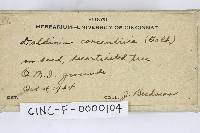 FUNGI
HERBARIUM—UNIVERSITY OF CINCINNATI
Daldinia concentrica (Bolt)
on dead, decorticated tree
O.B.I. grounds
Oct. of 1924
DET.
COLL. J. Beckman
CINC-F-0000104